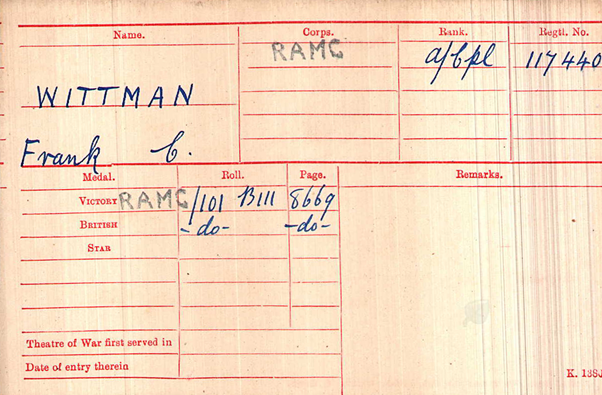 Name. Corps. Rank. Regtl. No.
RAMC a/Cpl 117440
WITTMAN
Frank C.
Medal. Roll. Page. Remarks.
VICTORY RAMC/101 B111 8669
BRITISH -do- -do-
STAR
Theatre of War first served in
Date of entry therein
K. 1380